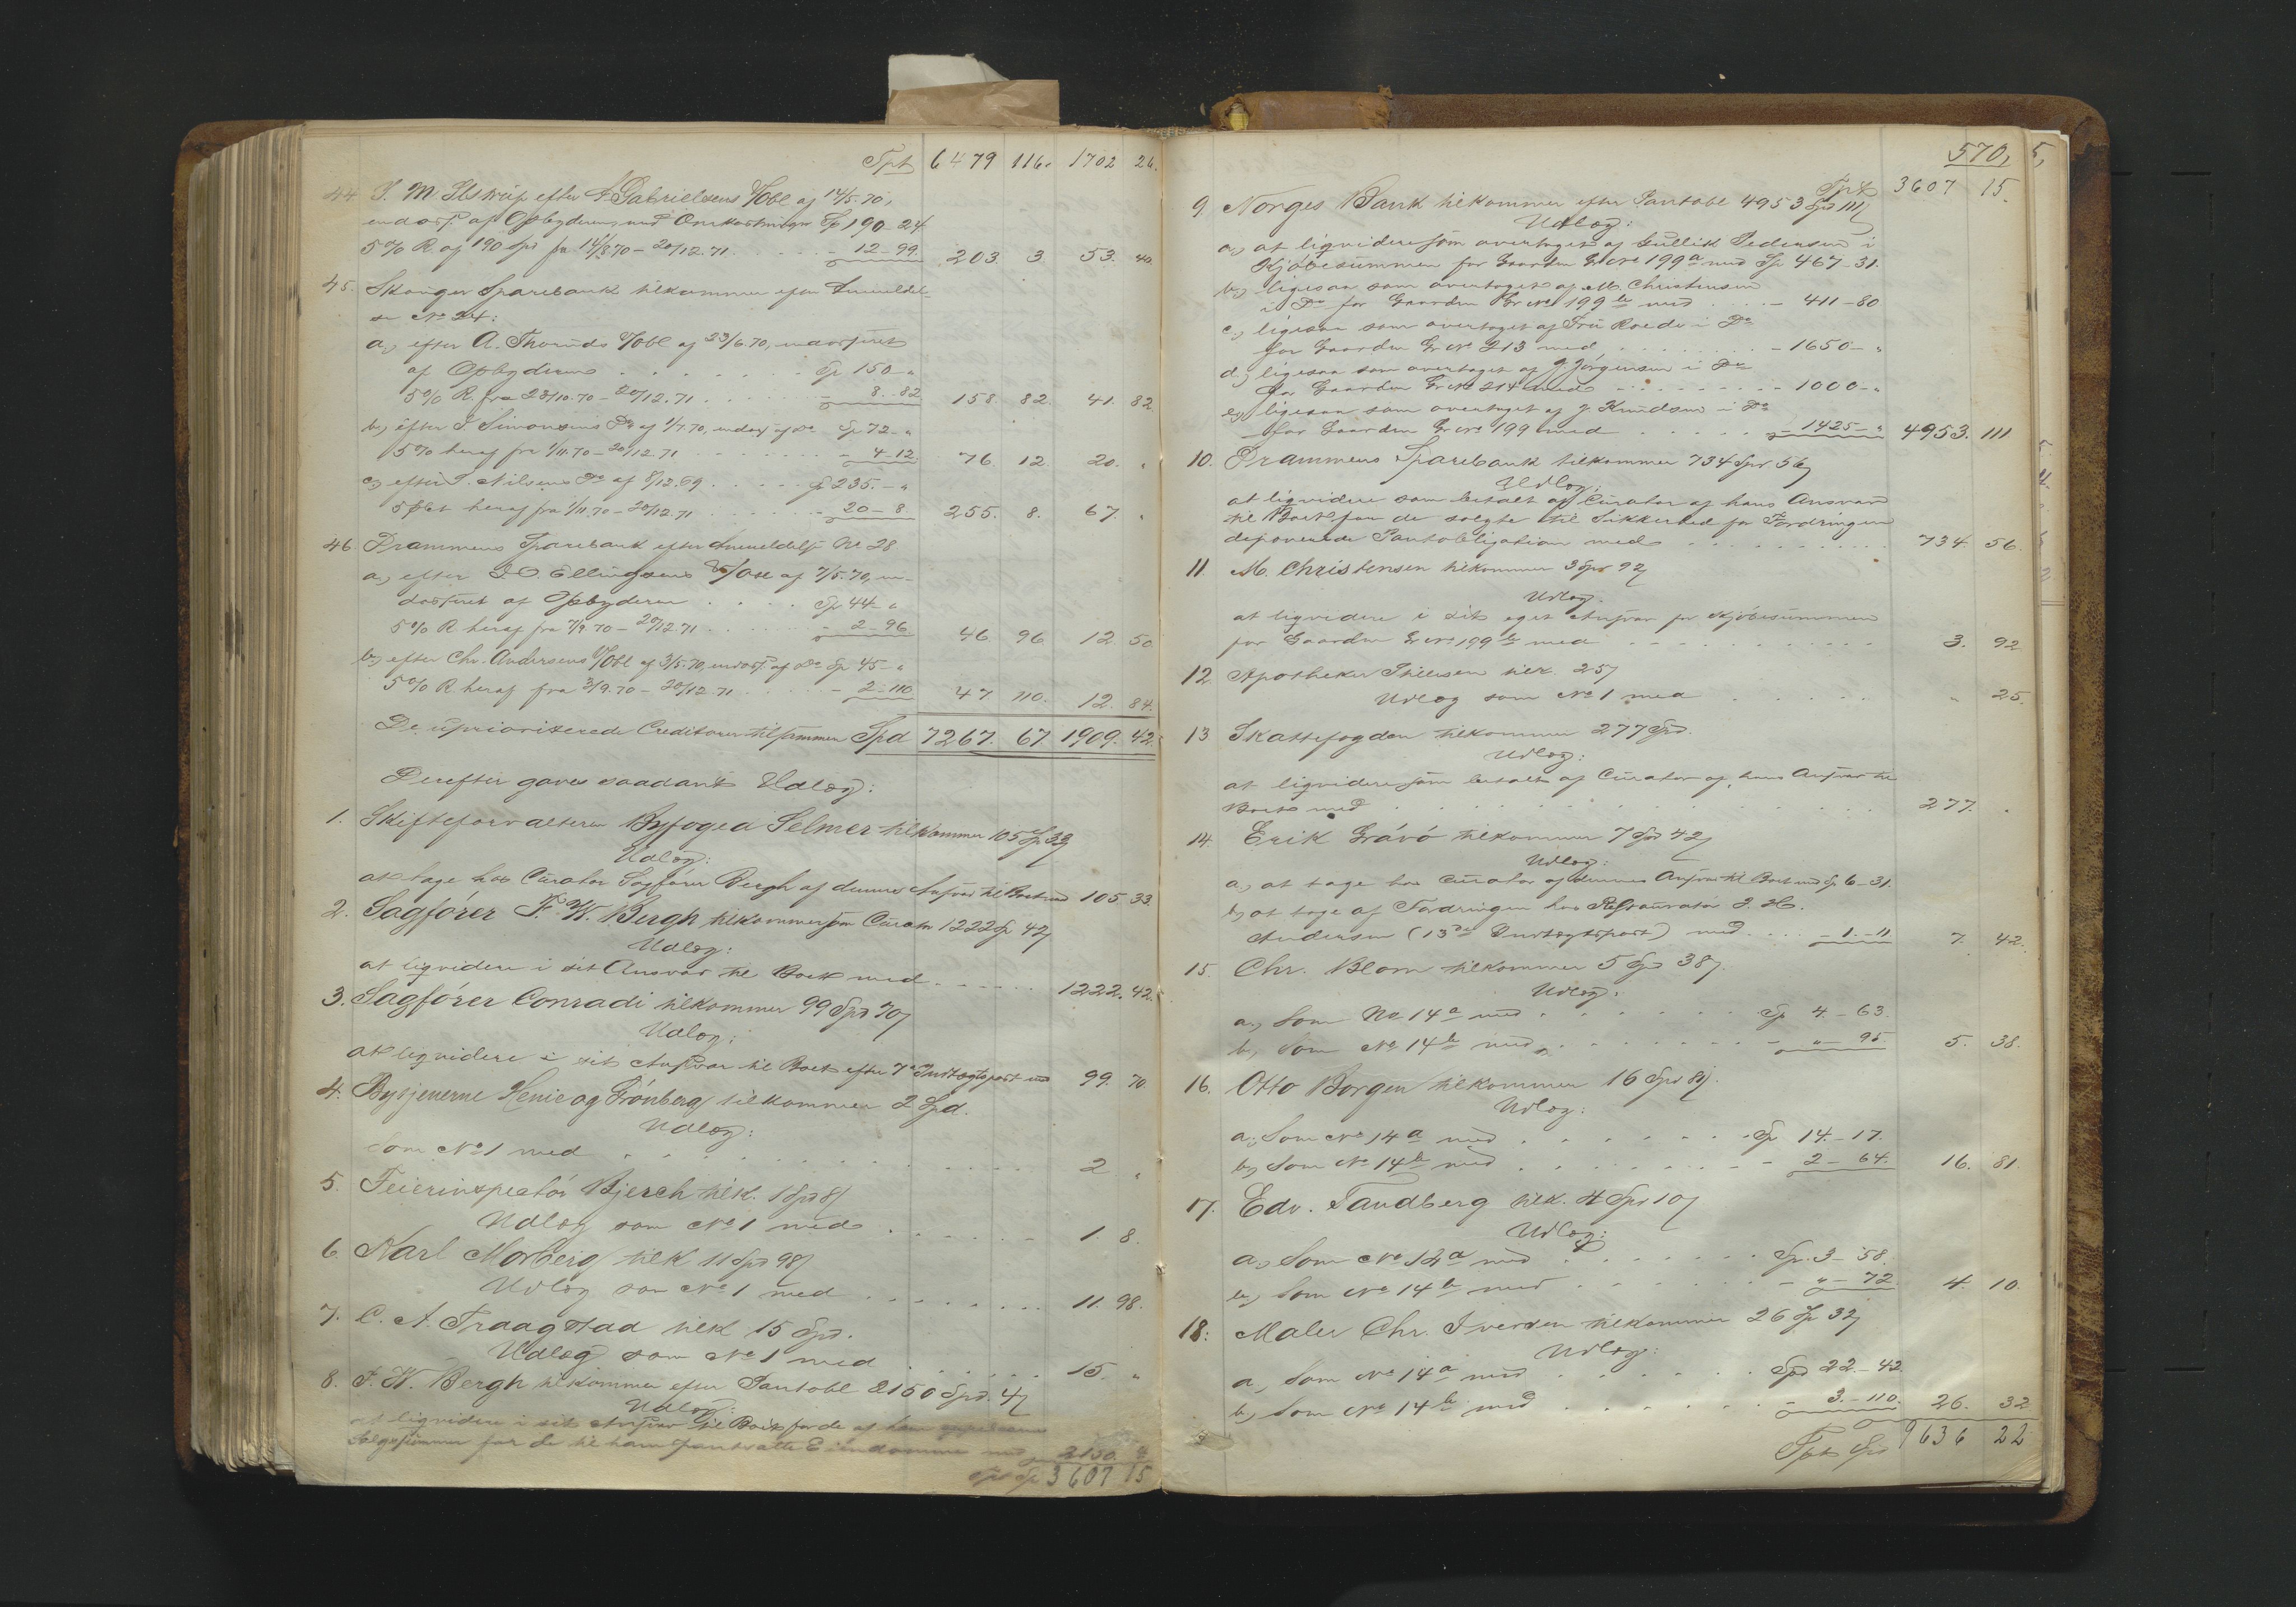 Tpt 6479 116. 1702 26.
44. J. M. Ilstrup efter A. Gabrielsens V/Obl af 14/5.70,
endoss. af Opbyderen, med Omkostninger Sp 190-24
5% R. af 190 Spd fra 14/8.70 - 20/12.71 . . . - 12-99. 203. 3. 53. 40.
45. Skoger Sparebank tilkommer efter Anmeldel-
se No 24:
a, efter A. Thoruds V/Obl af 23/6.70, endosseret
af Opbyderen . . . Sp 150 - "
5% R. fra 23/10.70 - 20/12.71 . . . - 8. 82 158. 82. 41. 82.
b, efter J. Simonsens Do af 1/7.70, endoss. af Do Sp 72 - "
5% heraf fra 1/11.70 - 20/12.71 . . . - 4-12. 76 12. 20. "
c, efter J. Nilsens Do af 8/12.69 . . . Sp 235. - "
5 pCt heraf fra 1/11.70 - 20/12.71 . . . - 20-8. 255. 8. 67. "
46. Drammens Sparebank efter Anmeldelse No 28
a, efter D. Ellingsens V/Obl af 7/5.70, en-
dosseret af Opbyderen . . . Sp 44 - "
5% R. heraf fra 7/9.70 - 20/12.71 . . . - 2-96 46. 96 12. 50
b, efter Chr. Andersens V/Obl af 3/5.70, endoss. af Do Sp 45 - "
5% R. heraf fra 3/9.70 - 20/12.71 . . . - 2-110 47 110. 12. 84.
De upriviterede Creditorer tilsammen Spd 7267. 67. 1909. 42.
Derefter gaves saadant Udlæg:
1. Skifteforvalteren Byfoged Selmer tilkommer 105 Sp 33
Udlæg:
at tage hos Curator Sagfører Bergh af dennes Ansvar til Boet med 105. 33.
2. Sagfører F. W. Bergh tilkommer som Curator 1222 Sp 42
Udlæg:
at liqvidere i sit Ansvar til Boet med . . . 1222. 42.
3. Sagfører Conradi tilkommer 99 Spd 70
Udlæg:
at liqvidere i sit Ansvar til Boet efter 7de Indtægtspost med 99. 70.
4. Bytjenerne Henie og Grønberg tilkommer 2 Spd.
Udlæg:
Som No 1 med . . . 2 "
5. Feierinspectør Bjerch tilk. 1 Spd 8
Udlæg som No 1 med . . . 1 8.
6. Karl Morberg tilk 11 Spd 98
Udlæg som No 1 med . . . 11. 98.
7. C. A. Traagstad tilk 15 Spd.
Udlæg som No 1 med . . . 15. "
8. F. W. Bergh tilkommer efter Pantobl 2150 Spd. 4
Udlæg:
at liqvidere i sit Ansvar til Boet for de af ham
Salgssummer for de til ham pantsatte Eiendomme med 2150. 4
Tpt Sp 3607 15
570,
Tpt 3607 15.
9. Norges Bank tilkommer efter Pantobl 4953 Spd 111
Udlæg:
a, at liqvidere som overtaget af Gullik Pedersen i
Kjøbesummen for Gaarden Gr No 199a med Sp 467-31.
b, ligesaa som overtaget af M. Christensen
i Do for Gaarden Gr No 199b med . . . - 411-80
c, ligesaa som overtaget af Fru Roede i Do
for Gaarden Gr No 213 med . . . - 1650 - "
d, ligesaa som overtaget af J. Jørgensen i Do
for Gaarden Gr No 214 med . . . - 1000 - "
e, ligesaa som overtaget af J. Knudsen i Do
for Gaarden Gr No 199 med . . . - 1425 - " 4953. 111
10. Drammens Sparebank tilkommer 734 Spd. 56
Udlæg:
at liqvidere som betalt af Curator af hans Ansvar
til Boet for de solgte til Sikkerhed for Fordringen
deponerede Pantobligation med . . . 734. 56.
11. M. Christensen tilkommer 3 Spd 92
Udlæg.
at liqvidere i sit eget Ansvar for Kjøbesummen
for Gaarden Gr No 199b med . . . 3. 92
12. Apotheker Thilesen tilk. 25
Udlæg som No 1 med . . . " 25.
13. Skattefogden tilkommer 277 Spd.
Udlæg:
at liqvidere som betalt af Curator af hans Ansvar til
Boet med . . . 277. "
14. Erik Grávó tilkommer 7 Spd 42
Udlæg:
a, at tage hos Curator af dennes Ansvar til Boet med Sp 6-31.
b, at tage af Fordringen hos Restauratør J. H.
Andersen (13de Indtægtspost) med . . . - 1-11. 7. 42.
15. Chr. Blom tilkommer 5 Sp 38
Udlæg:
a, Som No 14a med . . . Sp 4-63.
b, Som No 14b med . . . - "-95. 5. 38.
16. Otto Borgen tilkommer 16 Spd 81
Udlæg:
a, Som No 14a med . . . Sp 14-17.
b, Som No 14b med . . . - 2-64. 16. 81.
17. Edv. Tandberg tilk. 4 Spd 10
Udlæg:
a, Som No 14a med . . . Sp. 3-58.
b, Som No 14b med . . . - "-72 4. 10.
18. Maler Chr. Iversen tilkommer 26 Sp 32
Udlæg:
a, Som No 14a med . . . Spd 22-42
b, Som No 14b med . . . - 3-110. 26. 32
Tpt Spd 9636 22